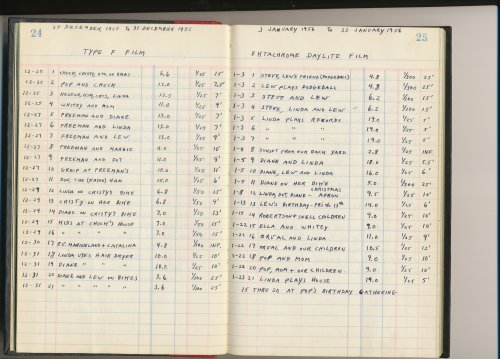 24
25 DECEMBER 1955 to 31 DECEMBER 1955
TYPE F FILM
12-25 1 6.6 1/25 15'
12-25 2 POP AND CHUCK 12.0 1/25 7.5'
12-25 3 LINDA 12.5 1/25 7'
12-27 4 WHITEY AND MOM 11.0 1/25 9'
12-27 5 FREEMAN AND DIANE 13.0 1/25 7'
12-27 6 FREEMAN AND LINDA 13.0 1/25 7'
12-27 7 FREEMAN AND LEW 13.0 1/25 7'
12-27 8 FREEMAN AND MARGIE 11.0 1/25
12-27 9 FREEMAN AND DOT 11.0 1/25 9'
12-27 10 GROUP AT FREEMAN'S 10.0 1/25
12-27 11 DON, THE (RADIO) HAM 15.0 1/25 6'
12-29 12 LINDA ON CRISTY'S BIKE 6.8 1/50 15'
12-29 13 CRISTY ON HER BIKE 6.8 1/50 9'
12-29 14 DIANE ON CRISTY'S BIKE 7.0 1/50 13'
12-29 15 KIDS AT CHULM'S HOUSE 7.0 1/50 15'
12-29 16 " " " 7.0 1/50 15'
12-30 17 P.S. MARINELAND + CATALINA 4.8 1/100 INF.
12-31 18 LINDA USES HAIR DRYER 10.0 1/25 10'
12-31 19 DIANE " " 10.0 1/25 10'
12-31 20 DIANE AND LEW ON BIKES 5.6 1/100 25'
12-31 21 " " " " 5.6 1/100 25'
3 JANUARY 1956 to 22 JANUARY 1956
25
EKTACHROME DAYLITE FILM
1-3 1 STEVE, LEW'S FRIEND (DODGEBALL) 4.8 1/300 25'
1-3 2 LEW PLAYS DODGEBALL 4.8 1/300 25'
1-3 3 STEVE AND LEW 6.2 1/100 15'
1-3 4 STEVE, LINDA AND LEW 6.2 1/100 15'
1-3 5 LINDA PLAYS RECORDS 19.0 1/25 5'
1-3 6 " " " 19.0 1/25 5'
1-3 7 " " " 19.0 1/25 5'
1-4 8 SUNSET FROM OUR BACK YARD 2.8 1/25 INF.
1-5 9 DIANE AND LINDA 18.0 1/25 5.5'
1-5 10 DIANE, LEW AND LINDA 16.0 1/25 6'
1-5 11 DIANE ON HER BIKE 1/300 25'
1-8 12 LINDA, DOT, DIANE - CHRISTMAS APRON 9.5 1/25 10'
1-13 13 LEW'S BIRTHDAY - FRI. THE 13th 14.0 1/25 6'
1-15 14 ROBERTSON + SNELL CHILDREN 9.0 1/25 10'
1-22 15 ELLA AND WHITEY 9.0 1/25 10'
1-22 16 ORVAL AND LINDA 11.0 1/25 9'
1-22 17 ORVAL AND OUR CHILDREN 10.5 1/25 12'
1-22 18 POP AND MOM 9.0 1/25 10'
1-22 20 POP, MOM + OUR CHILDREN 9.0 1/25 10'
1-23 21 LINDA PLAYS HOUSE 19.0 1/25 5'
15 THRU 20 AT POP'S BIRTHDAY GATHERING